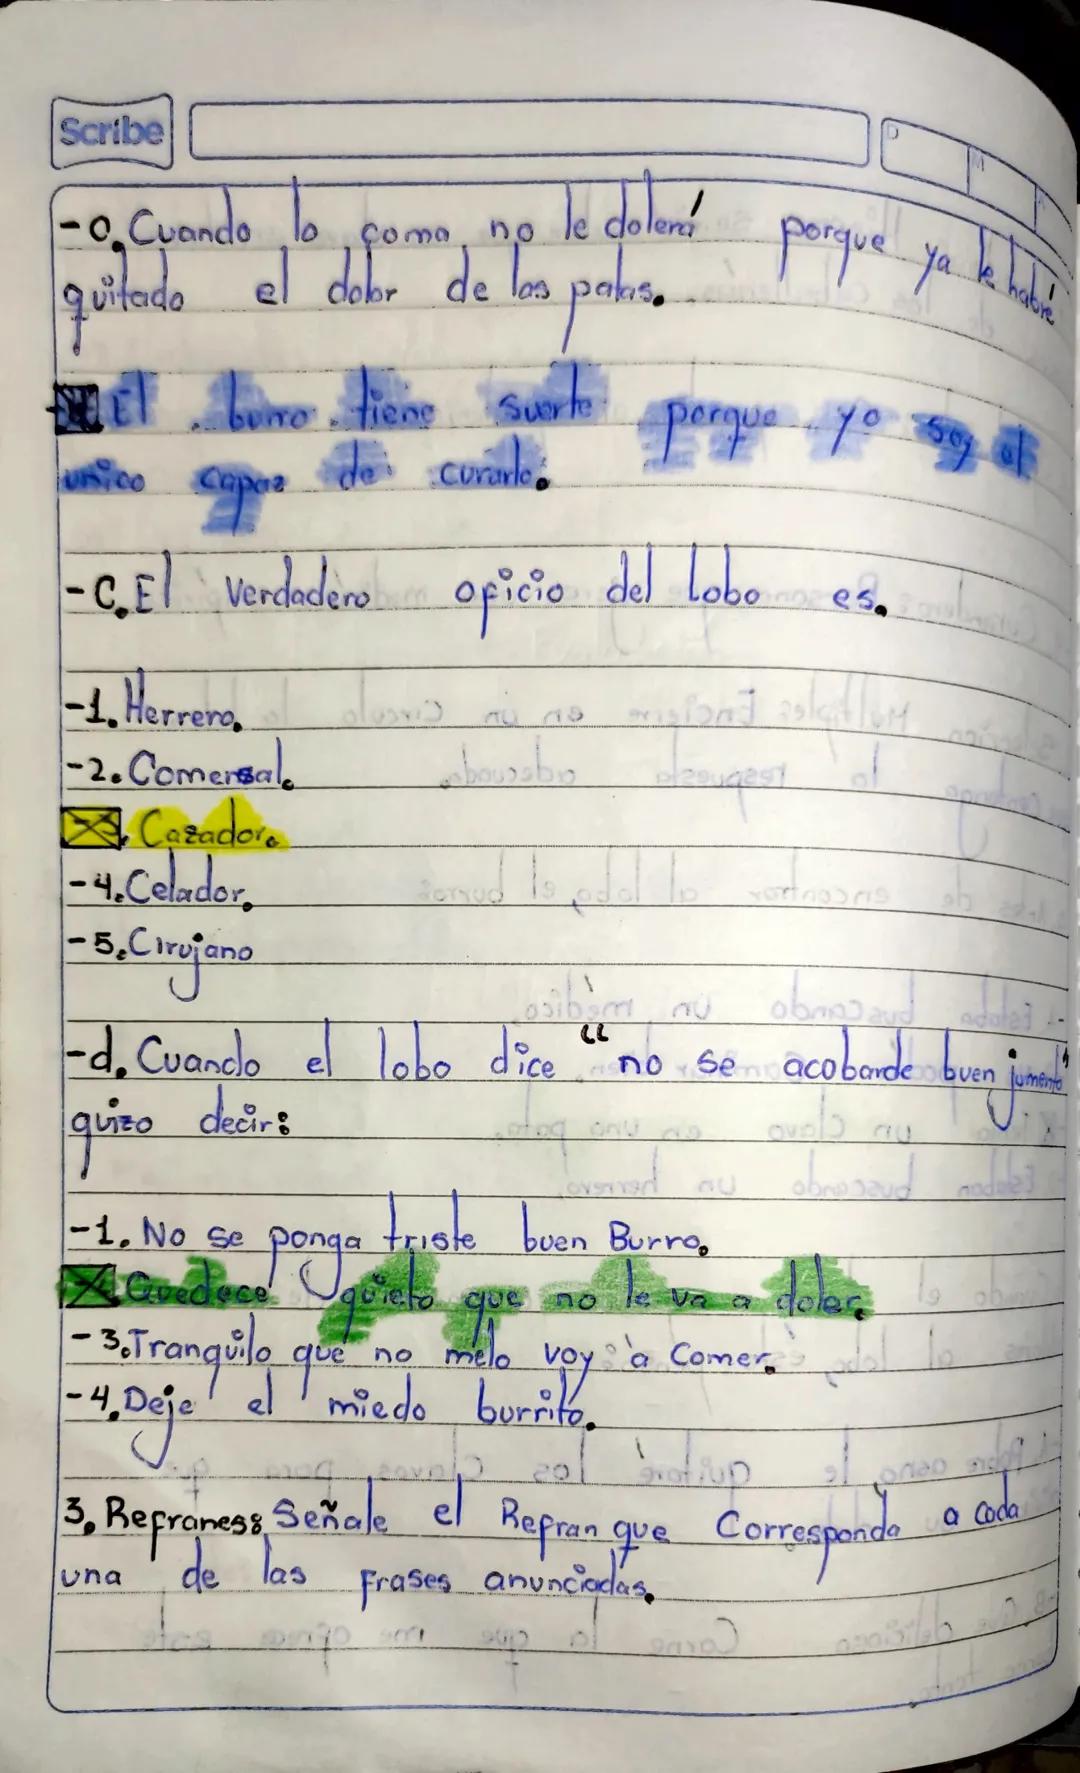 Scribe
D M A
-o. Cuando lo coma no le dolerá porque ya le habré
quitado el dolor de las patas.
El burro tiene suerte porque yo soy el
unico capaz de curarlo.
-C. El Verdadero oficio del lobo es.
-1. Herrero.
-2. Comersal.
-3. Cazador.
-4. Celador.
-5. Cirujano
-d. Cuando el lobo dice “no se acobarde buen jumento”
quizo decir:
-1. No se ponga triste buen Burro.
Quedece quieto que no le va a doler.
-3. Tranquilo que no melo voy a Comer.
-4. Deje el miedo burrito.
3. Refranes: Señale el Refran que Corresponda a cada
una de las frases anunciadas.